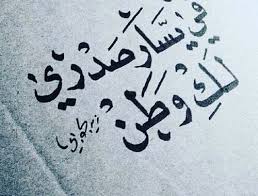 في يَسَار صَدْري
لَكِ وَطَنٌ